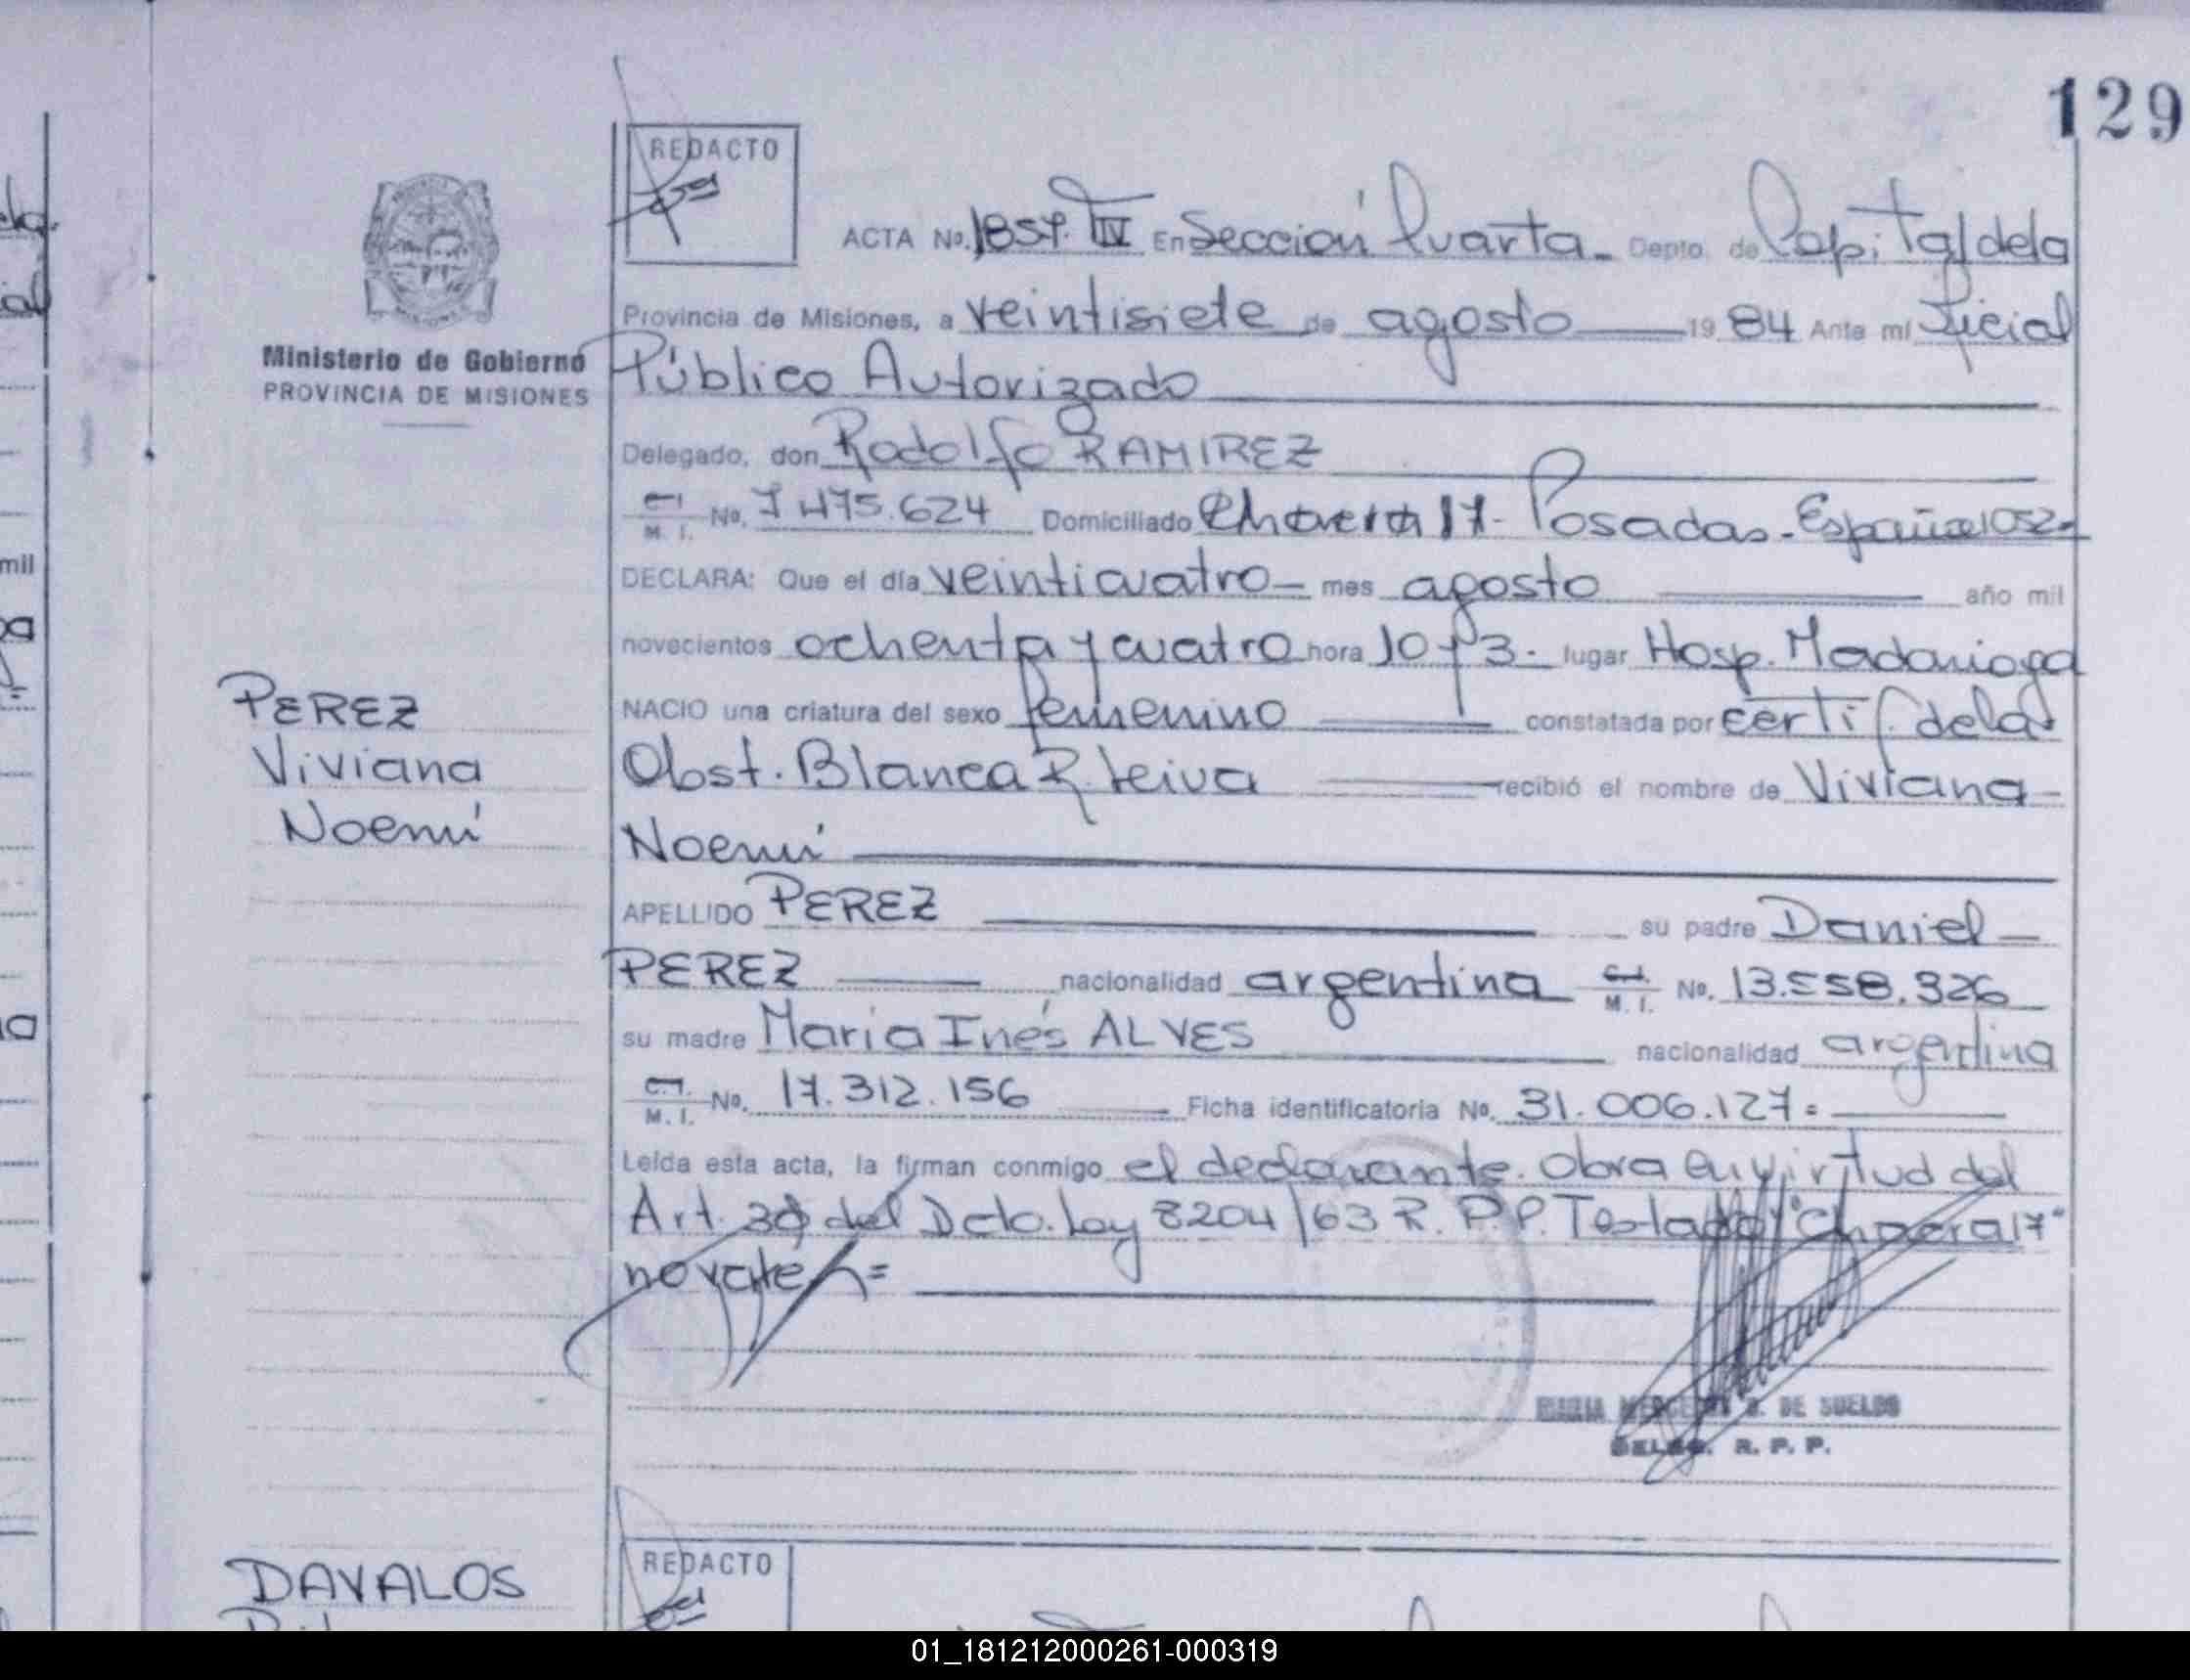 129
REDACTO
ACTA No. 1857. T IV En Sección Cuarta Depto. de Capital dela
Provincia de Misiones, a veintisiete de agosto 19 84 Ante mí Oficial
Ministerio de Gobierno
PROVINCIA DE MISIONES
Público Autorizado
Delegado, don Rodolfo RAMIREZ
C.I.
M. I. No. 7.475.624 Domiciliado 17- Posadas- España 1052-
DECLARA: Que el día veinticuatro- mes agosto año mil
novecientos ochenta y cuatro hora 10 y 3. lugar Hosp. Madariaga
NACIO una criatura del sexo femenino constatada por certif. dela
Obst. Blanca R. Leiva recibió el nombre de Viviana-
Noemí
PEREZ
Viviana
Noemí
APELLIDO PEREZ su padre Daniel-
PEREZ nacionalidad argentina C.I.
M. I. No. 13.558.326
su madre Maria Inés ALVES nacionalidad argentina
C.I.
M. I. No. 17.312.156 Ficha identificatoria No. 31.006.127=
Leída esta acta, la firman conmigo el declarante. Obra en virtud del
Art. 30 del Dcto. Ley 8204/63 R. P.P. Testado "17"
no vale=
MARIA MERCEDES DE SUELDO
DELEG. R. P. P.
DAVALOS
REDACTO
mil
01_181212000261-000319